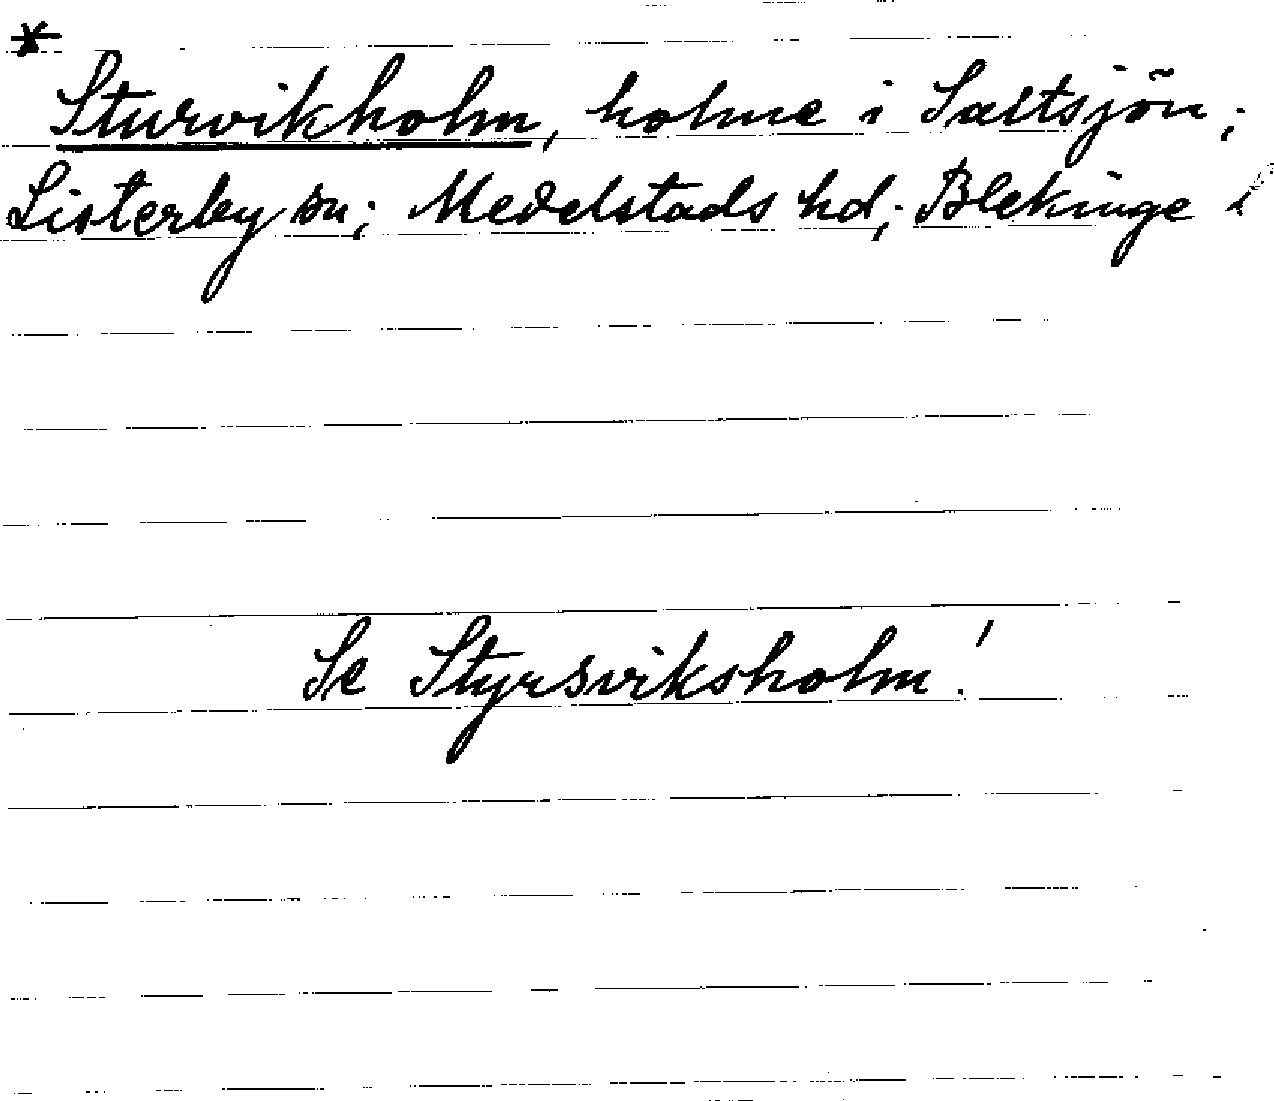 *
Sturvikholm, holme i Saltsjön;
Listerby sn; Medelstads hd; Blekinge l
Se Styrsviksholm!